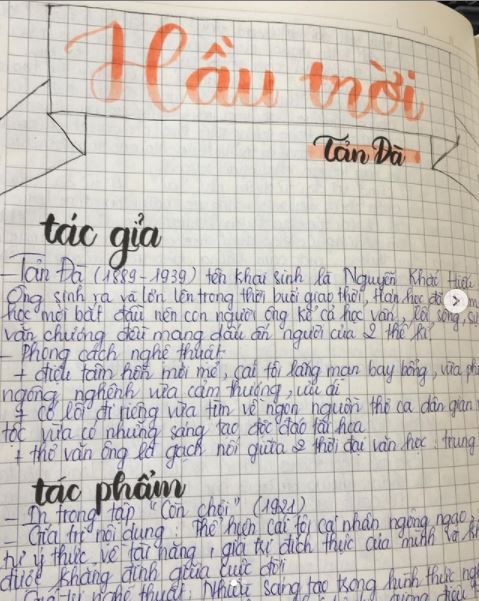 Hầu trời
Tản Đà
tác giả
- Tản Đà (1889-1939) tên khai sinh là Nguyễn Khắc Hiếu
Ông sinh ra và lớn lên trong thời buổi giao thời, Hán học đã
học mới bắt đầu nên con người ông kể cả học vấn, lối sống, sự
văn chương đều mang dấu ấn người của 2 thế kỉ
- Phong cách nghệ thuật
+ điệu tâm hồn mới mẻ, cái tôi lãng mạn bay bổng, vừa
ngông nghênh vừa cảm thương, ưu ái
+ có lối đi riêng vừa tìm về ngọn nguồn thơ ca dân gian,
tộc vừa có những sáng tạo độc đáo tài hoa
+ thơ văn ông là gạch nối giữa 2 thời đại văn học: trung
tác phẩm
- In trong tập "Còn chơi" (1921)
- Giá trị nội dung: Thể hiện cái tôi cá nhân ngông ngạo,
tự ý thức về tài năng, giá trị đích thực của mình và
được khẳng định giữa cuộc đời
- Giá trị nghệ thuật: Nhiều sáng tạo trong hình thức